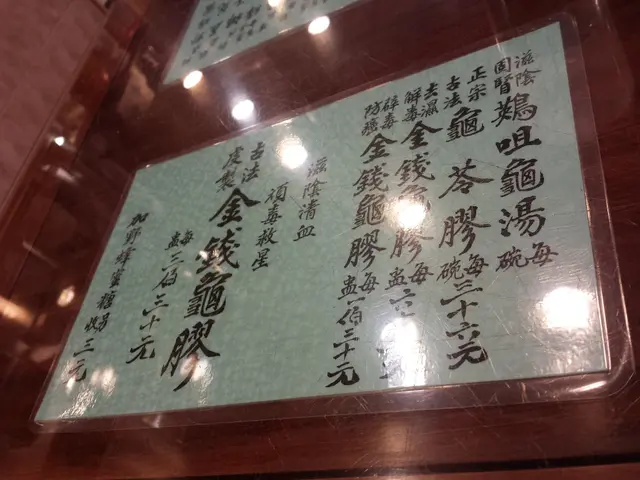 滋陰
固腎
鷯咀龜湯
每碗
正宗
古法
龜苓膠
每碗三十六元
去濕
解毒
金錢龜膠
每盅
辟毒
防癌
金錢龜膠
每盅一伯三十元
滋陰清血
頑毒救星
古法
虔製
金錢龜膠
每盅二伯三十元
加野蜂蜜糖另收三元